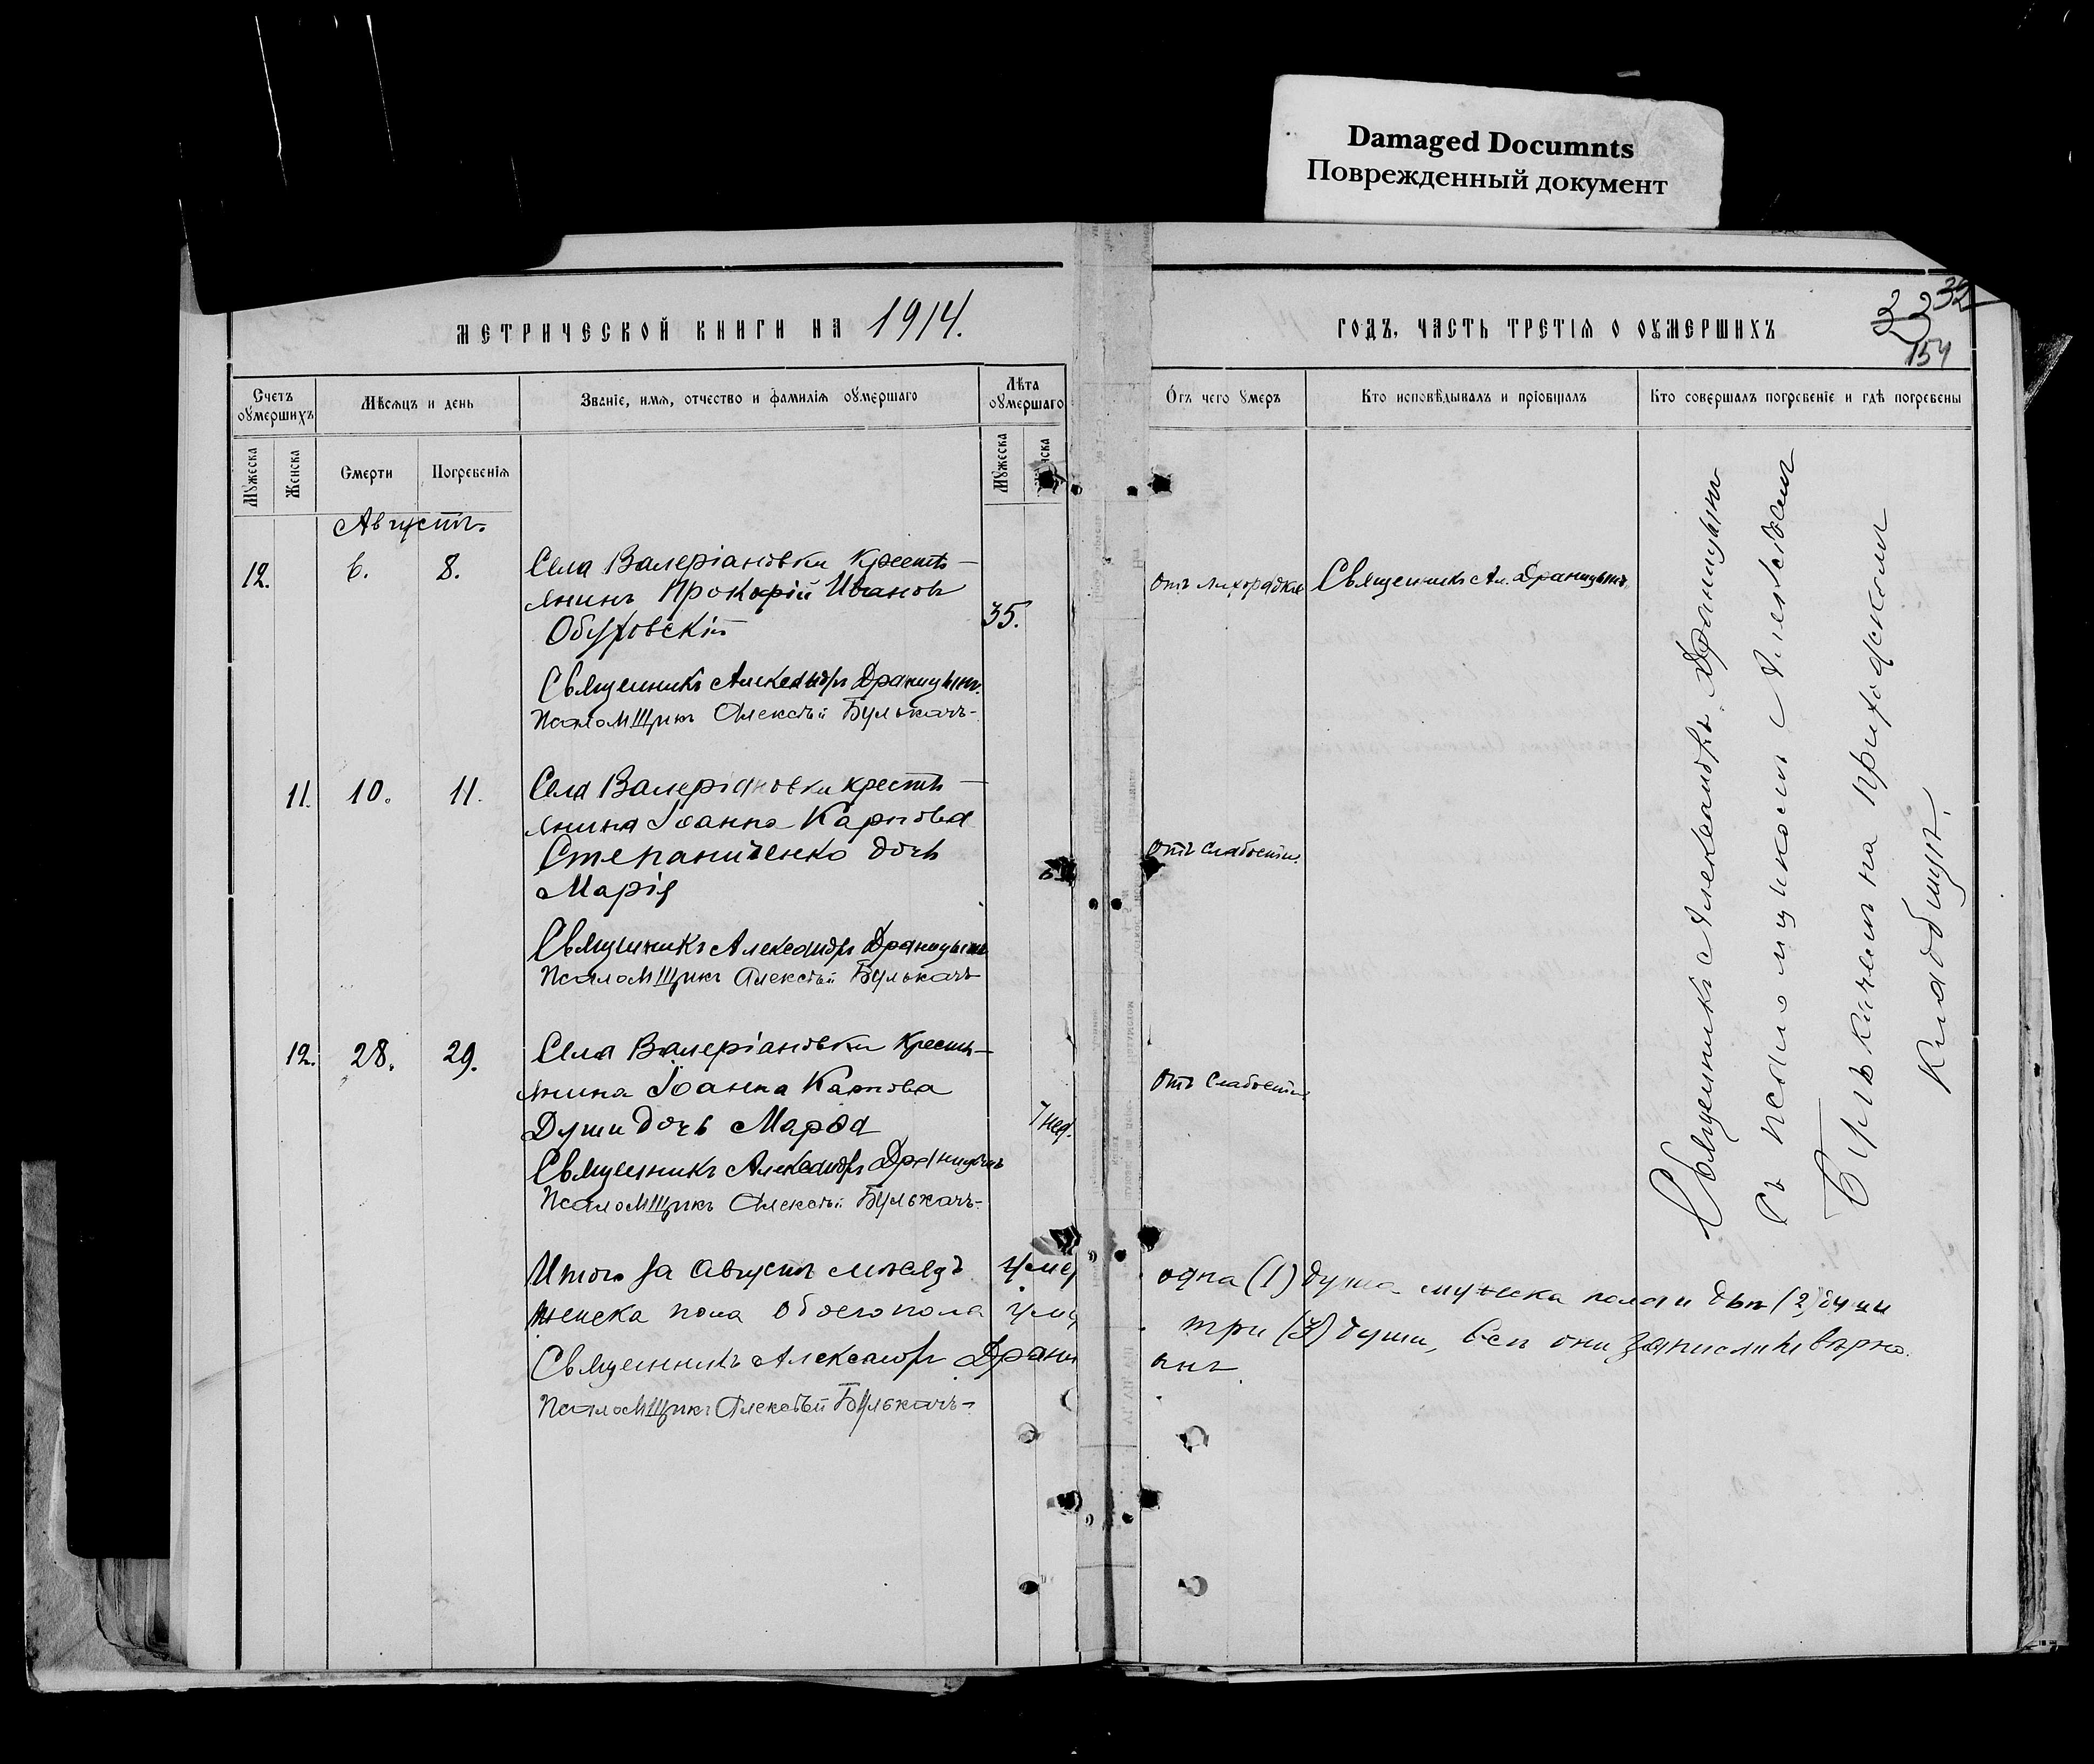 Damaged Documnts
Поврежденный документ
МЕТРИЧЕСКОЙ КНИГИ НА 1914.
ГОДЪ, ЧАСТЬ ТРЕТІѦ О ОУМЕРШИХЪ
32
154
Счетъ оумершихъ
Мѣсяцъ и день
Званіе, имя, отчество и фамилія оумершаго
Лѣта оумершаго
Отъ чего умеръ
Кто исповѣдывалъ и пріобщалъ
Кто совершалъ погребеніе и гдѣ погребены
Мужеска
Женска
Смерти
Погребенія
Мужеска
Августъ.
12. 6. 8. Села Валеріановки кресть-
янинъ Прокофій Ивановъ
Обуховскій
35.
Отъ лихорадки
Священникъ Ал. Драницынъ.
Священникъ Александръ Драницынъ.
Псаломщикъ Алексѣй Булькачъ-
11. 10. 11. Села Валеріановки кресть-
янина Іоанна Карпова
Степаниченко дочь
Марія
Отъ слабости.
Священникъ Александръ Драницынъ
Псаломщикъ Алексѣй Булькачъ-
12. 28. 29. Села Валеріановки кресть-
янина Іоанна Карпова
Души дочь Марѳа
7 нед.
Отъ слабости
Священникъ Александръ Драницынъ
Псаломщикъ Алексѣй Булькачъ-
Итого за Августъ мѣсяцъ умер одна (1) душа мужеска пола и двѣ (2) души
женска пола обоего пола три (3) души, всѣ они записаны вѣрно.
Священникъ Александръ Драницынъ.
Псаломщикъ Алексѣй Булькачъ-
Священникъ Александръ Драницынъ
съ псаломщикомъ Алексѣемъ
Булькачемъ на приходскомъ
кладбищѣ.